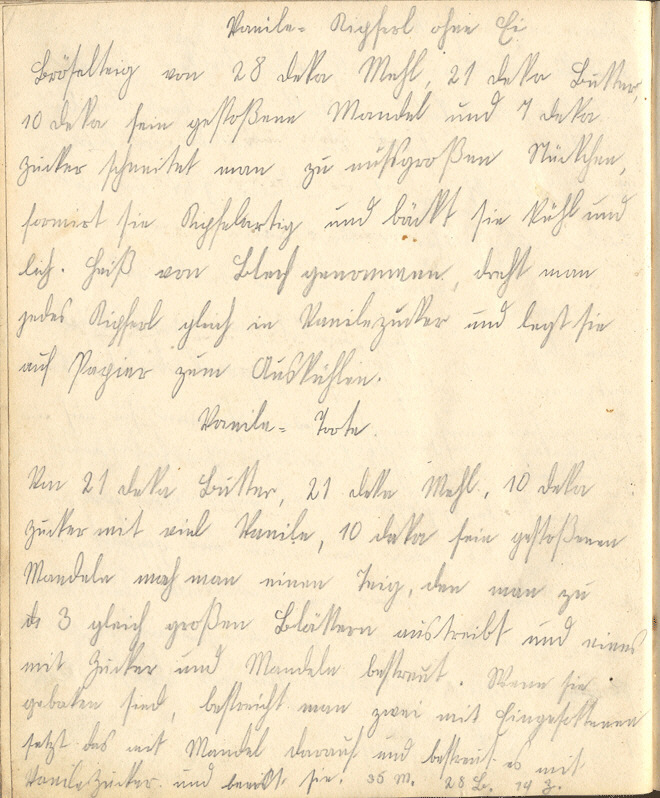 Vanile- Kipferl ohne Ei
Bröselteig von 28 deka Mehl, 21 deka Butter,
10 deka fein gestoßene Mandel und 7 deka
Zucker schneitet man zu nußgroßen Stückchen,
formirt sie Kipfelartig und bäckt sie kühl und
lich. Heiß von Blech genommen, dreht man
jedes Kipferl gleich in Vanilezucker und legt sie
auf Papier zum Auskühlen.
Vanile- Torte.
Von 21 deka Butter, 21 deka Mehl, 10 deka
Zucker mit viel Vanile, 10 deka fein gestoßenen
Mandeln mach man einen Teig, den man zu
3 gleich großen Blättern austreibt und eines
mit Zucker und Mandeln bestreut. Wenn sie
gebaken sind, bestreicht man zwei mit Eingesottenen
setzt das mit Mandel darauf und bestreut es mit
Vanilezucker und sie. 35 M. 28 B. 14 Z.